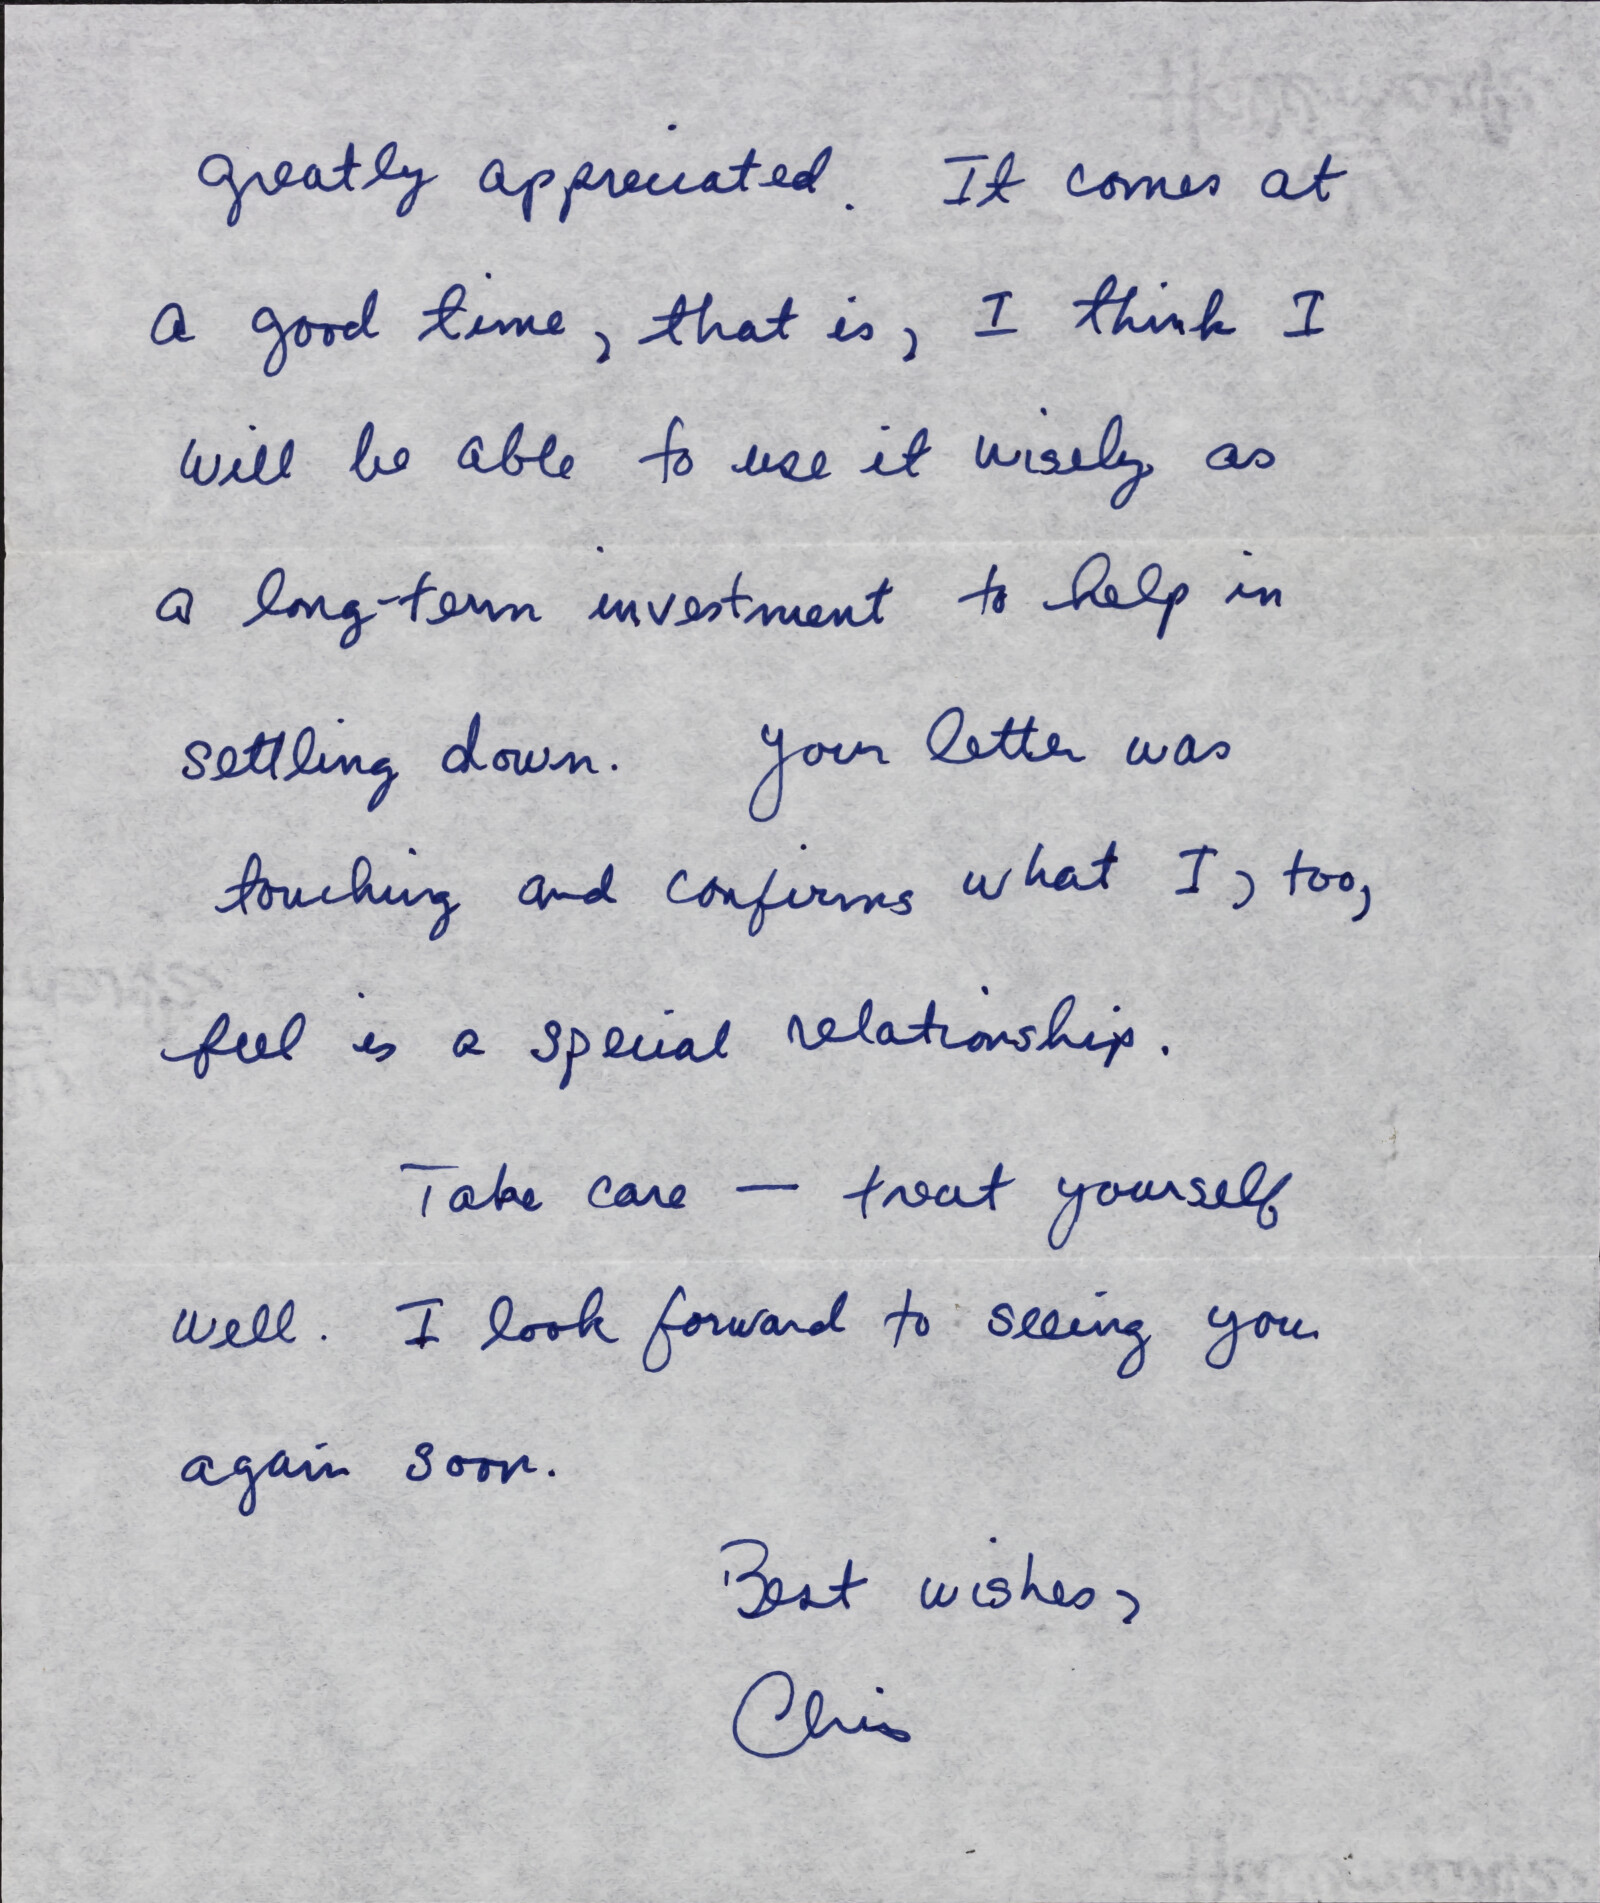 greatly appreciated. It comes at
a good time, that is, I think I
will be able to use it wisely as
a long-term investment to help in
settling down. Your letter was
touching and confirms what I, too,
feel is a special relationship.
Take care — treat yourself
well. I look forward to seeing you
again soon.
Best wishes,
Chris